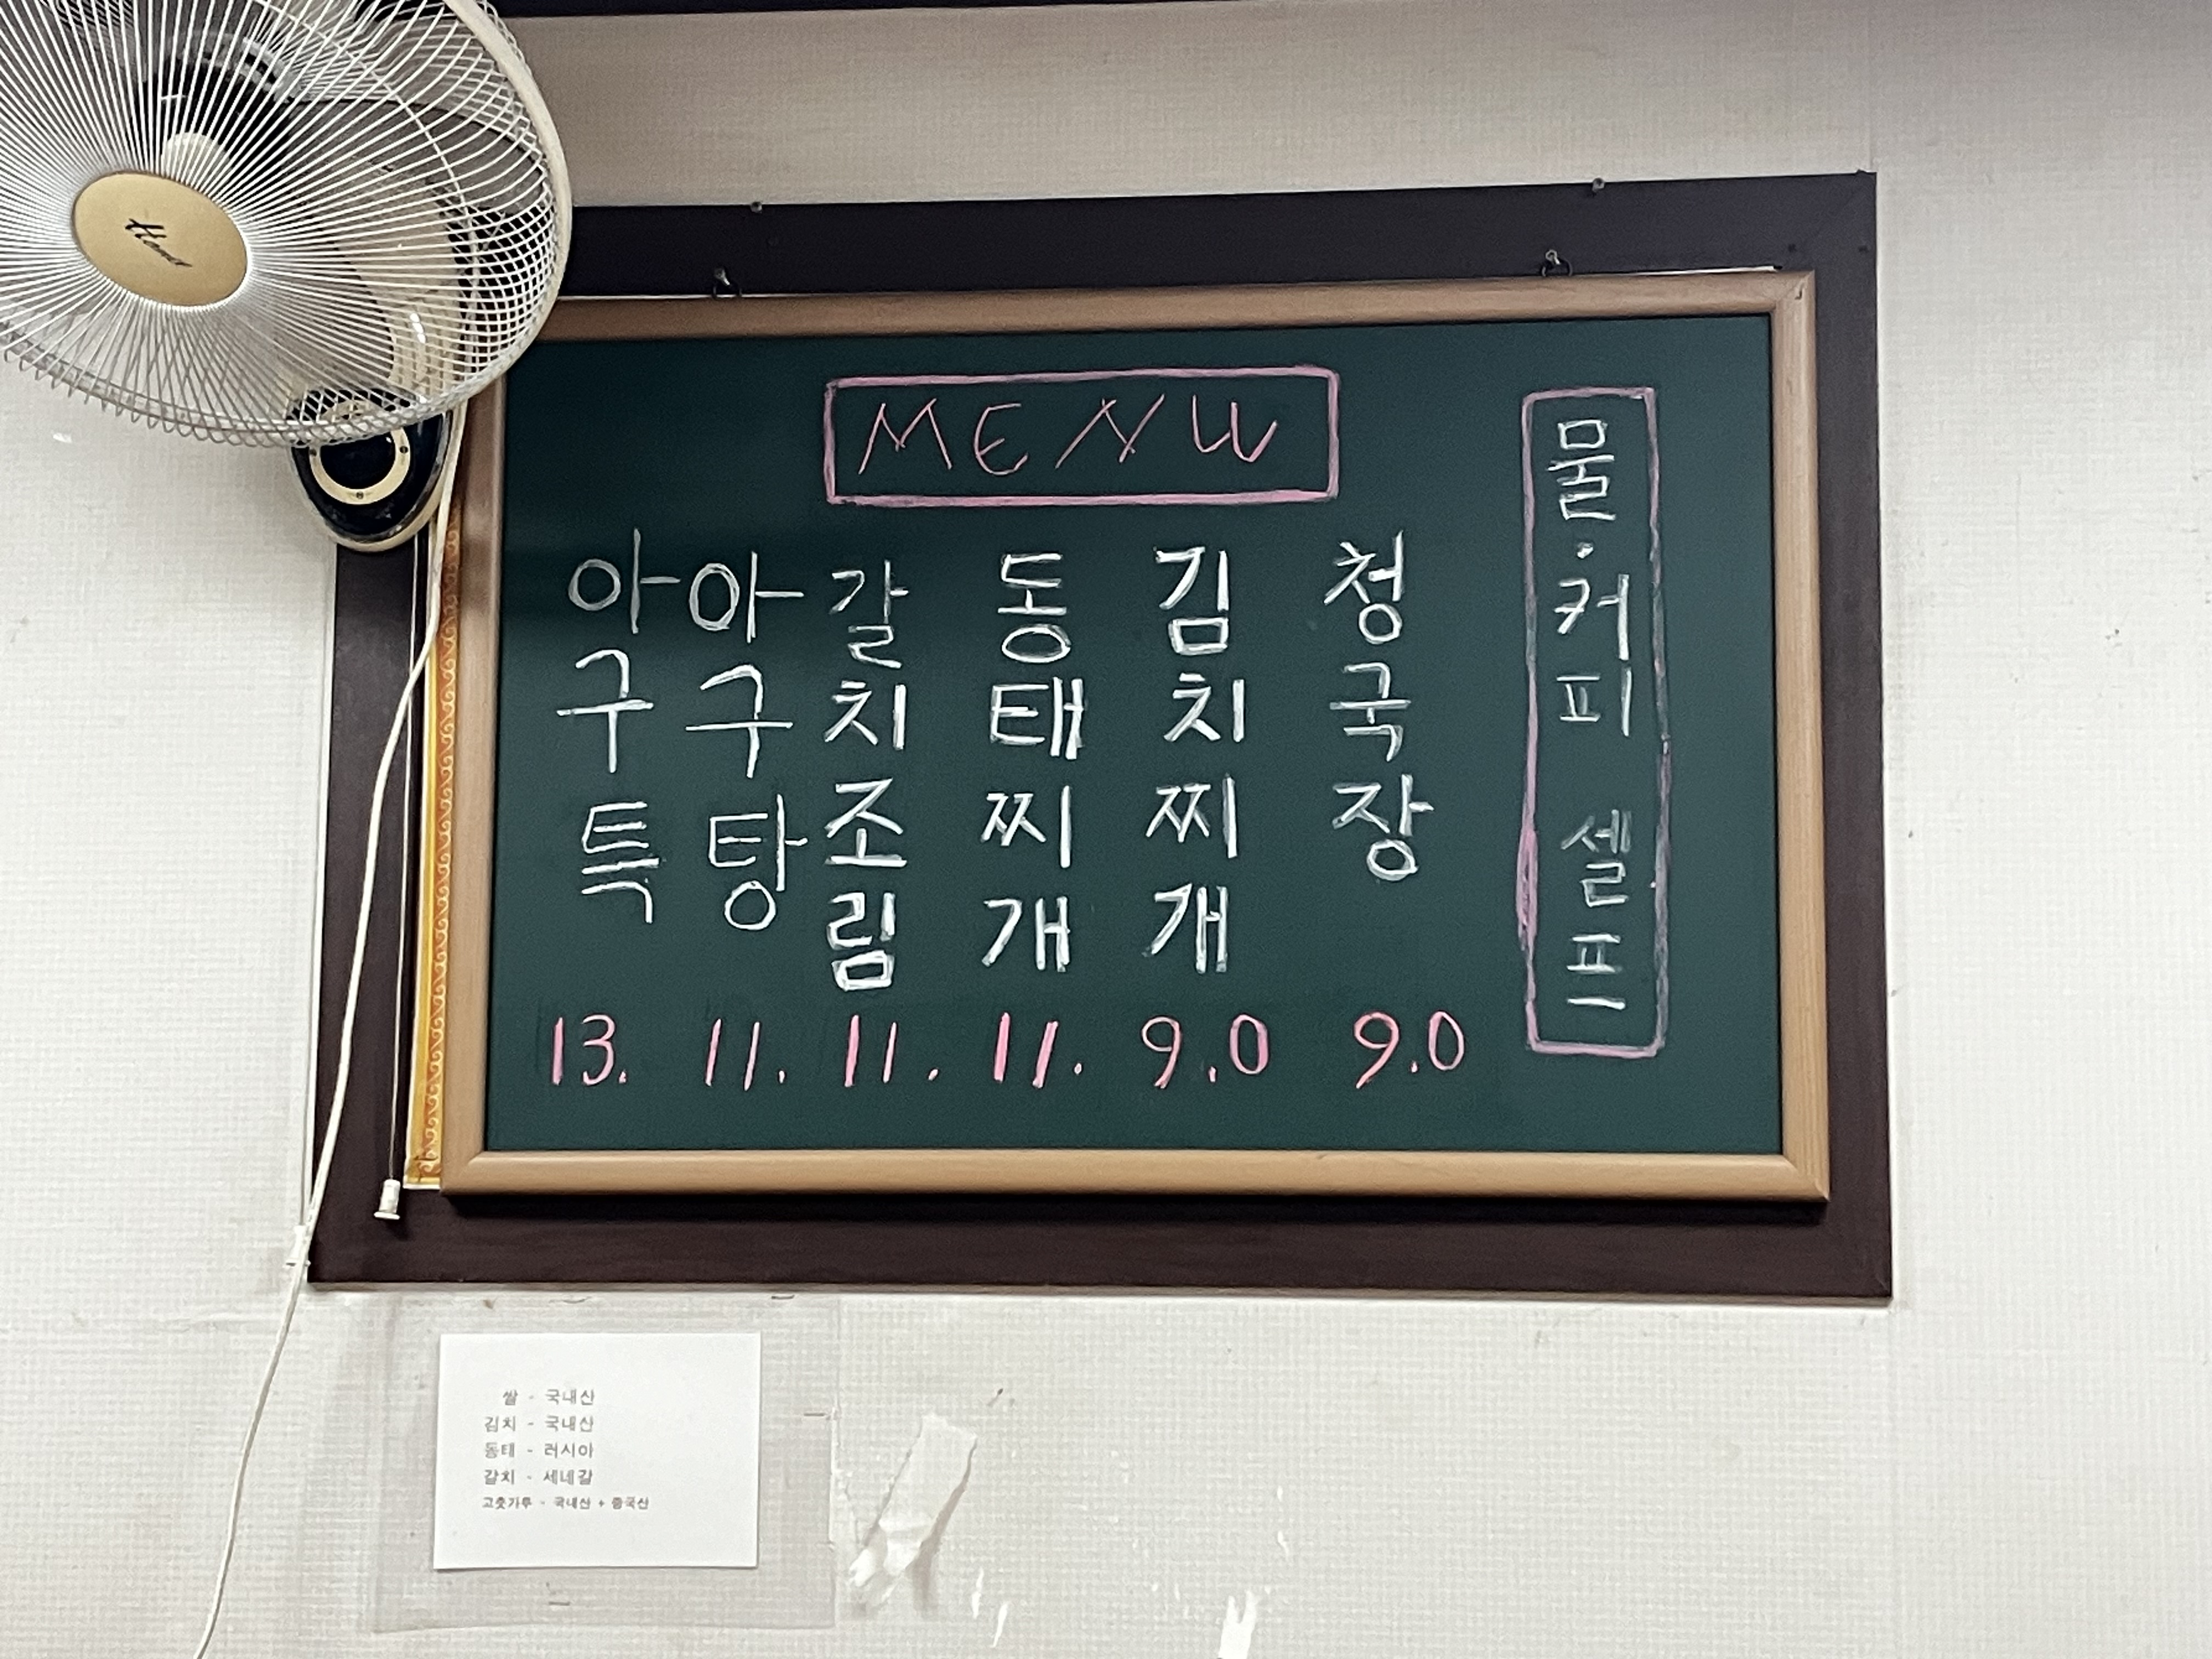 MENU
아구특 13.
아구탕 11.
갈치조림 11.
동태찌개 11.
김치찌개 9.0
청국장 9.0
물·커피 셀프
쌀 - 국내산
김치 - 국내산
동태 - 러시아
갈치 - 세네갈
고춧가루 - 국내산 + 중국산